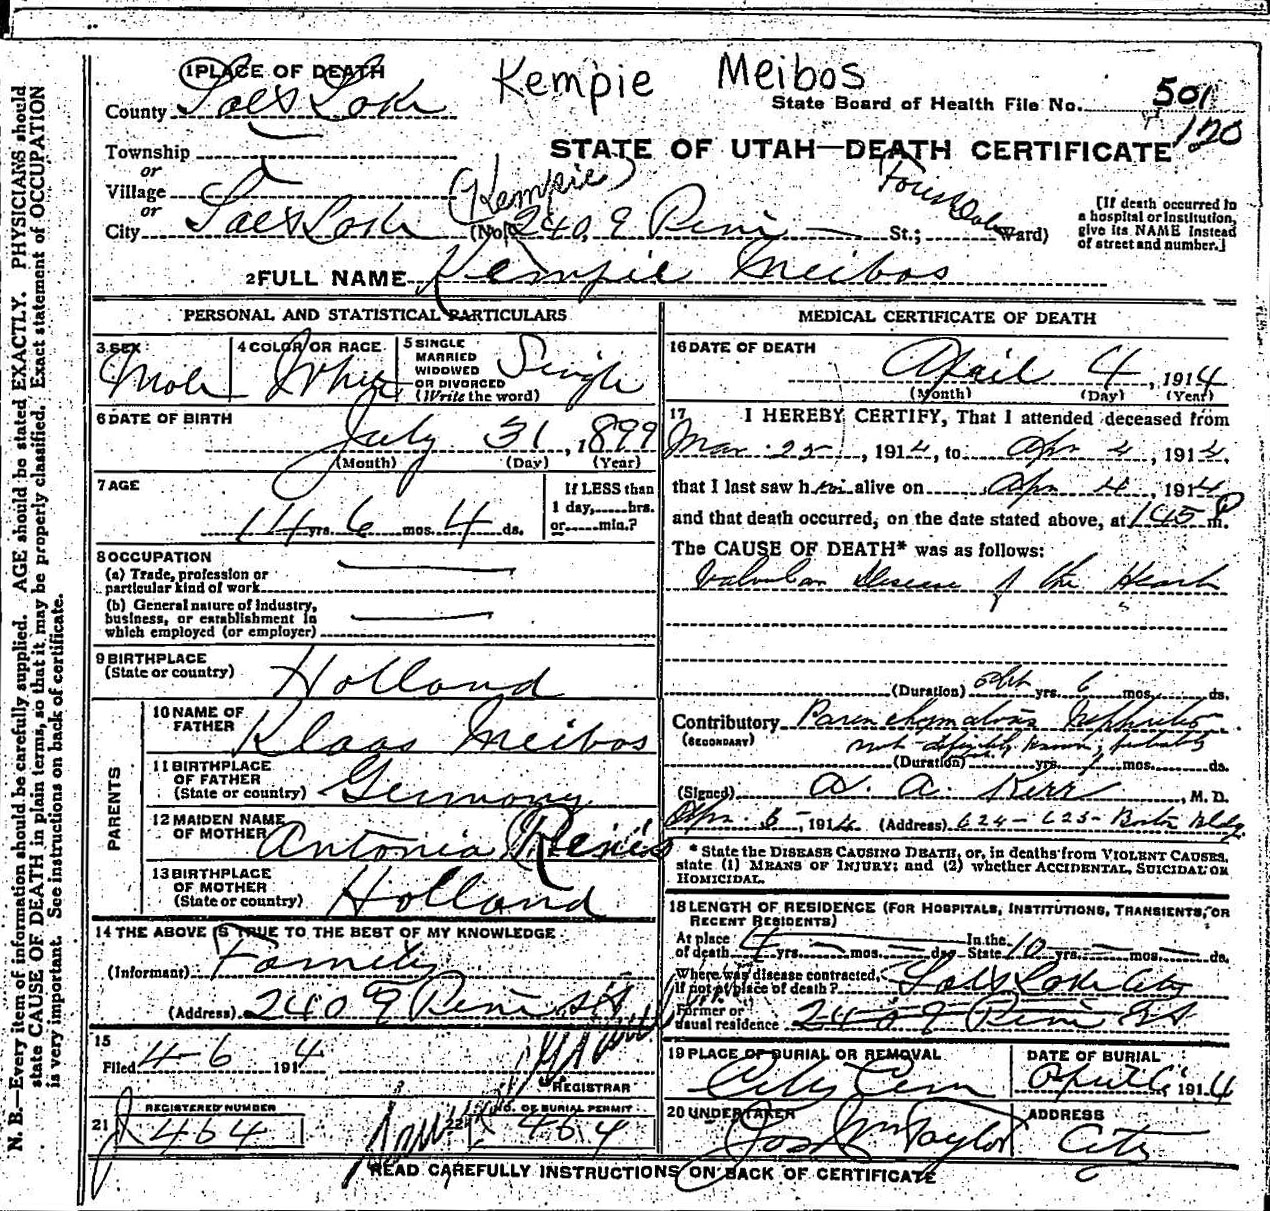 Kempie Meibos
1 PLACE OF DEATH
County Salt Lake
State Board of Health File No. 501
120
Township
or
STATE OF UTAH—DEATH CERTIFICATE
Village
or
(Kempie)
Forest Dale
City Salt Lake (No. 240, 9 St.; Ward)
[If death occurred in a hospital or institution, give its NAME instead of street and number.]
2 FULL NAME Kempie Meibos
PERSONAL AND STATISTICAL PARTICULARS
3 SEX Male
4 COLOR OR RACE White
5 SINGLE MARRIED WIDOWED OR DIVORCED (Write the word) Single
6 DATE OF BIRTH
July 31, 1899
(Month) (Day) (Year)
7 AGE
14 yrs. 6 mos. 4 ds.
If LESS than 1 day, hrs. or min.?
8 OCCUPATION
(a) Trade, profession or particular kind of work
(b) General nature of industry, business, or establishment in which employed (or employer)
9 BIRTHPLACE (State or country) Holland
PARENTS
10 NAME OF FATHER Klaas Meibos
11 BIRTHPLACE OF FATHER (State or country) Germany
12 MAIDEN NAME OF MOTHER Antonia
13 BIRTHPLACE OF MOTHER (State or country) Holland
14 THE ABOVE IS TRUE TO THE BEST OF MY KNOWLEDGE
(Informant) Family
(Address) 240 9
15
Filed 4-6 1914
REGISTRAR
21 REGISTERED NUMBER 464
22 NO. OF BURIAL PERMIT 464
MEDICAL CERTIFICATE OF DEATH
16 DATE OF DEATH
April 4, 1914
(Month) (Day) (Year)
17 I HEREBY CERTIFY, That I attended deceased from
Mar. 25, 1914, to Apr 4, 1914,
that I last saw him alive on Apr 4, 1914
and that death occurred, on the date stated above, at 145 P m.
The CAUSE OF DEATH* was as follows:
Valvular Disease of the Heart
(Duration) yrs. 6 mos. ds.
Contributory Parenchymatous Nephritis
(SECONDARY) not definitely known, probably
(Duration) yrs. mos. ds.
(Signed) A. A. Kerr, M. D.
Apr. 5-, 1914 (Address) 624-625- Boston Bldg
* State the DISEASE CAUSING DEATH, or, in deaths from VIOLENT CAUSES, state (1) MEANS OF INJURY; and (2) whether ACCIDENTAL, SUICIDAL OR HOMICIDAL.
18 LENGTH OF RESIDENCE (FOR HOSPITALS, INSTITUTIONS, TRANSIENTS, OR RECENT RESIDENTS)
At place of death 4 yrs. mos. ds. In the State 10 yrs. mos. ds.
Where was disease contracted, if not at place of death? Salt Lake City
Former or usual residence 240 9
19 PLACE OF BURIAL OR REMOVAL City Cem
DATE OF BURIAL April 6, 1914
20 UNDERTAKER Jos Wm Taylor
ADDRESS City
READ CAREFULLY INSTRUCTIONS ON BACK OF CERTIFICATE
N. B.—Every item of information should be carefully supplied. AGE should be stated EXACTLY. PHYSICIANS should
state CAUSE OF DEATH in plain terms, so that it may be properly classified. Exact statement of OCCUPATION
is very important. See instructions on back of certificate.